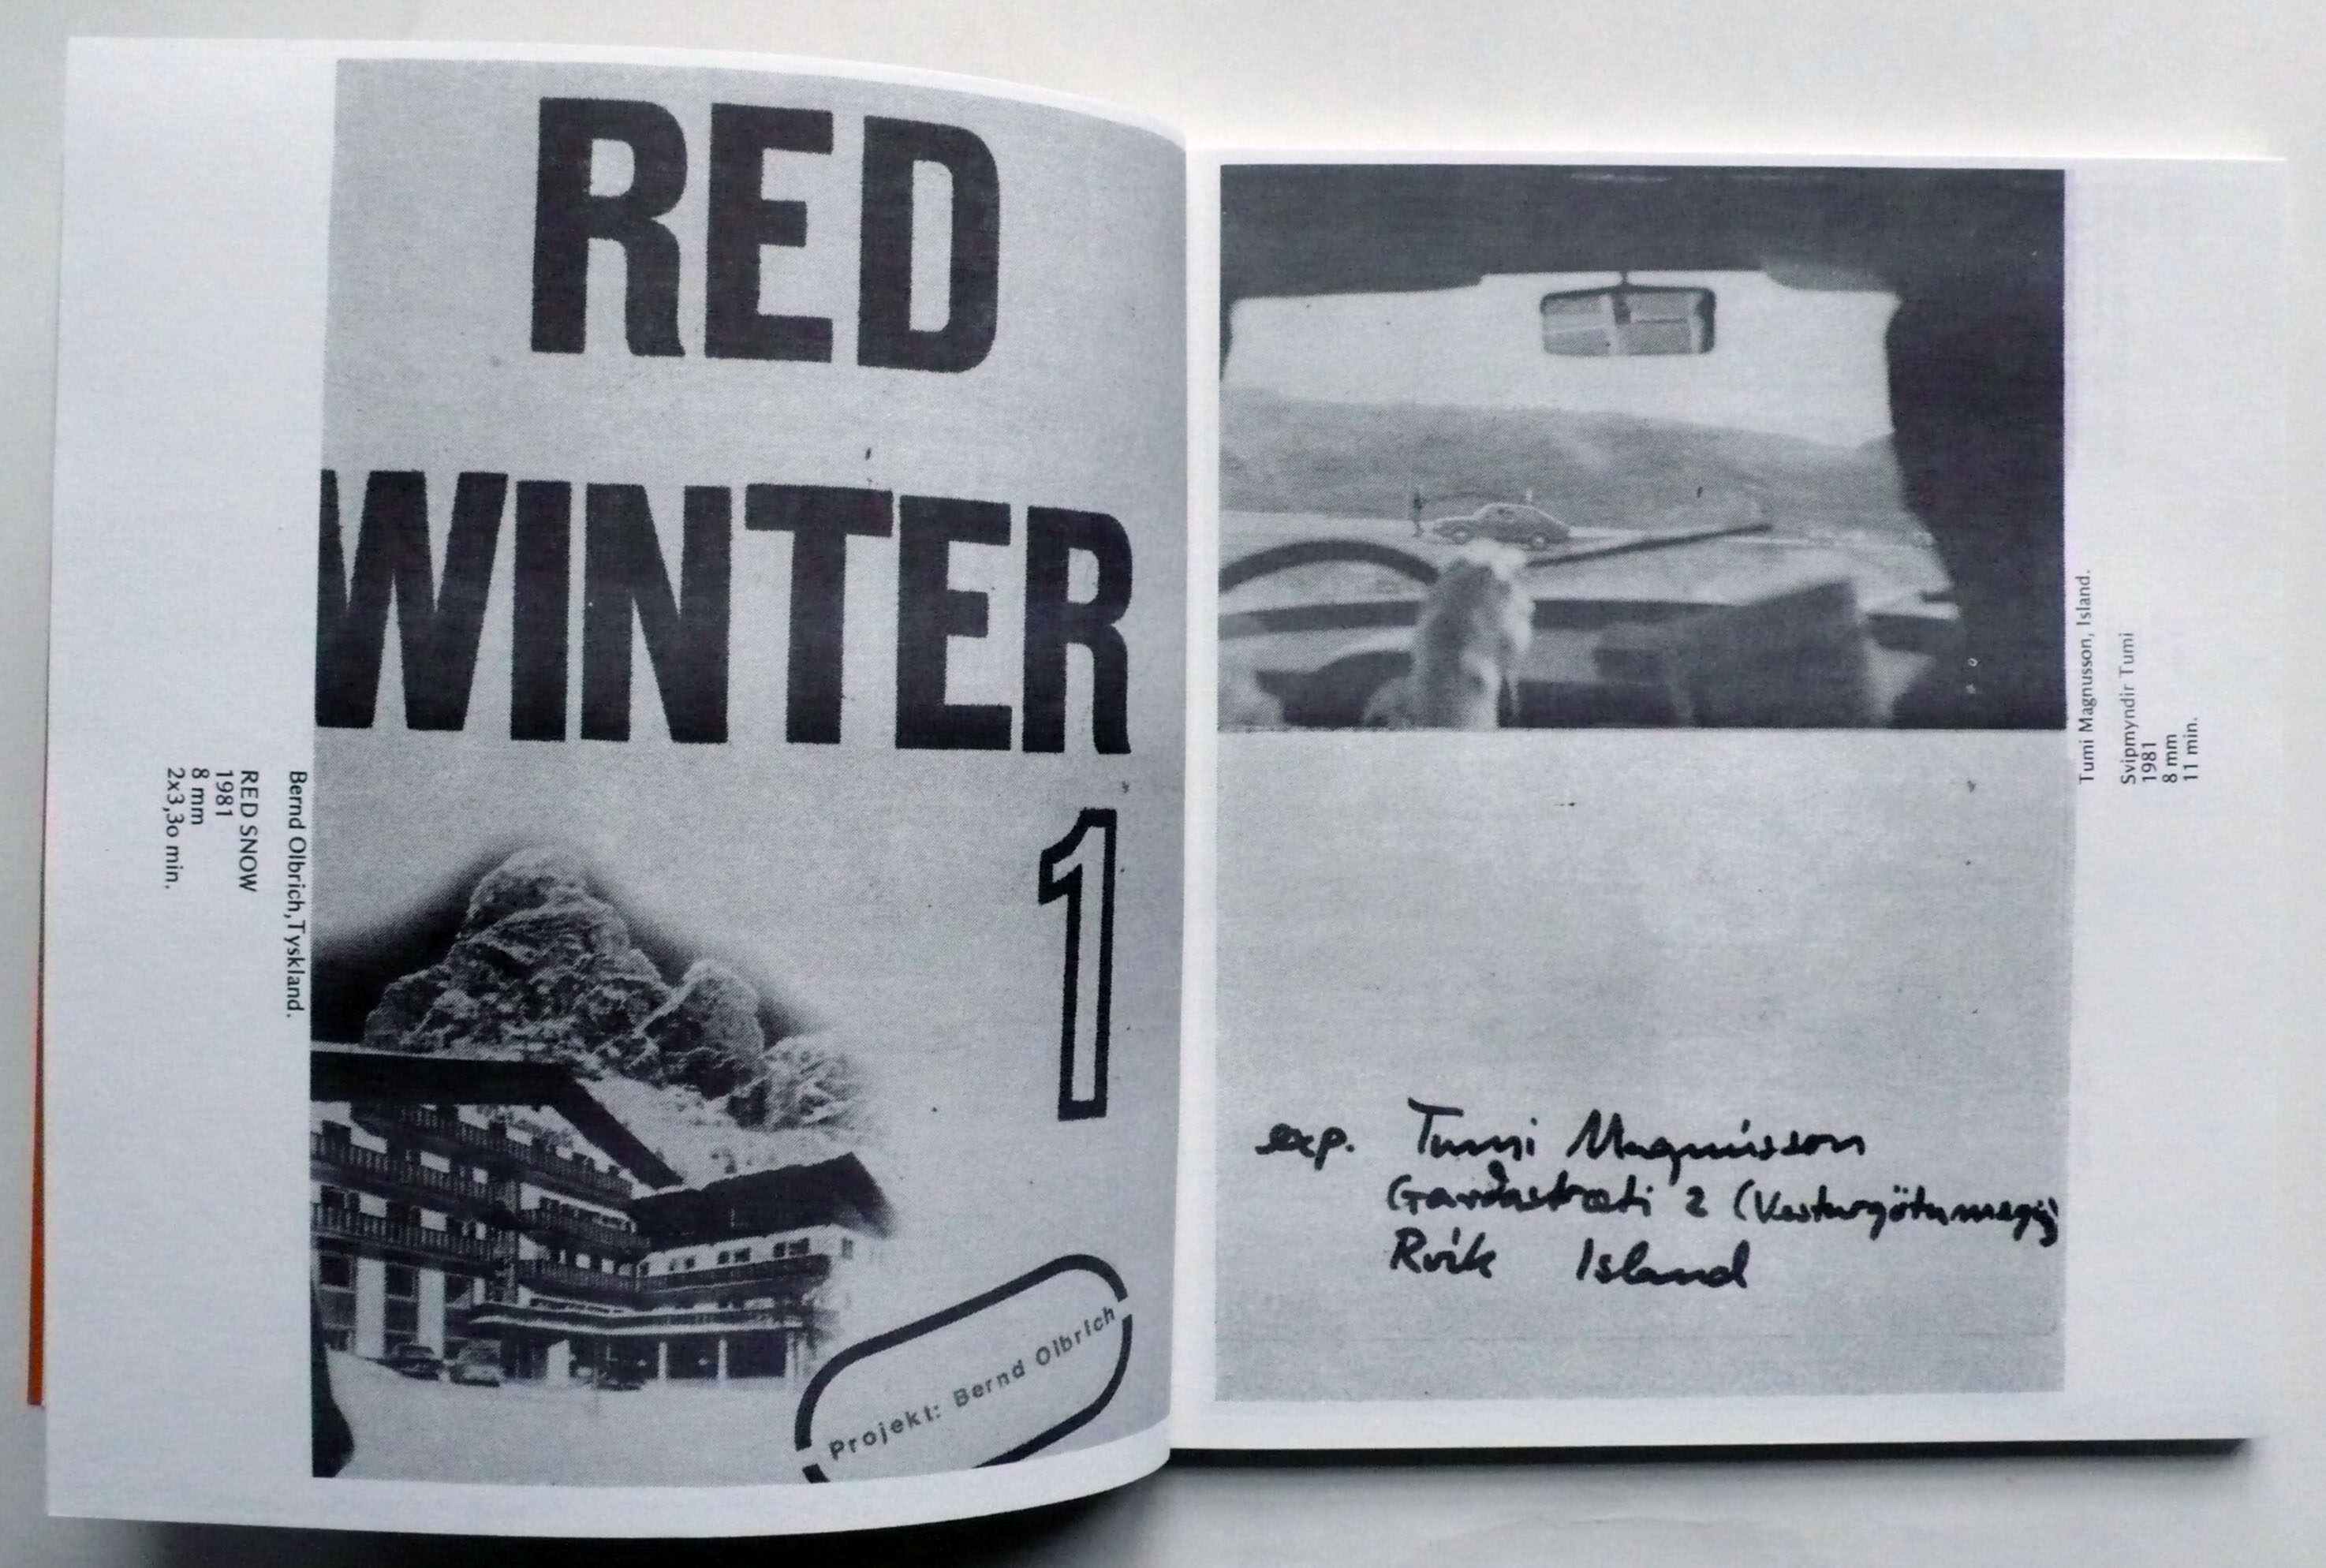 RED
WINTER
1
Projekt: Bernd Olbrich
Bernd Olbrich,Tyskland.
RED SNOW
1981
8 mm
2x3,3o min.
Tumi Magnusson, Island.
Svipmyndir Tumi
1981
8 mm
11 min.
exp. Tumi Magnússon
Garðastræti 2 (Vesturgötumegin)
Rvík Island